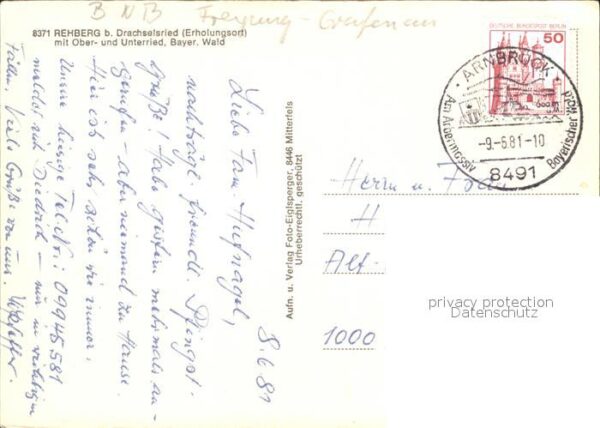 BNB Freyung-Grafenau
8371 REHBERG b. Drachselsried (Erholungsort)
mit Ober- und Unterried, Bayer. Wald
8.6.81
Liebe Fam. Hufnagel,
nachträgl. freundl. Pfingst-
grüße! Habe gestern mehrmals an-
gerufen – aber niemand zu Hause.
Hier ist sehr schön wie immer.
Unsere hiesige Tel. Nr.: 09945581
meldet sich Diedrich – nur in wichtigen
Fällen. Viele Grüße von uns.
Aufn. u. Verlag Foto-Eiglsperger, 8446 Mitterfels
Urheberrechtl. geschützt
DEUTSCHE BUNDESPOST BERLIN
50
ARNBRUCK
Am Arbermassiv
Bayerischer Wald
-9.-6.81-10
8491
Herrn u. Frau
H
Alt-
1000
privacy protection
Datenschutz